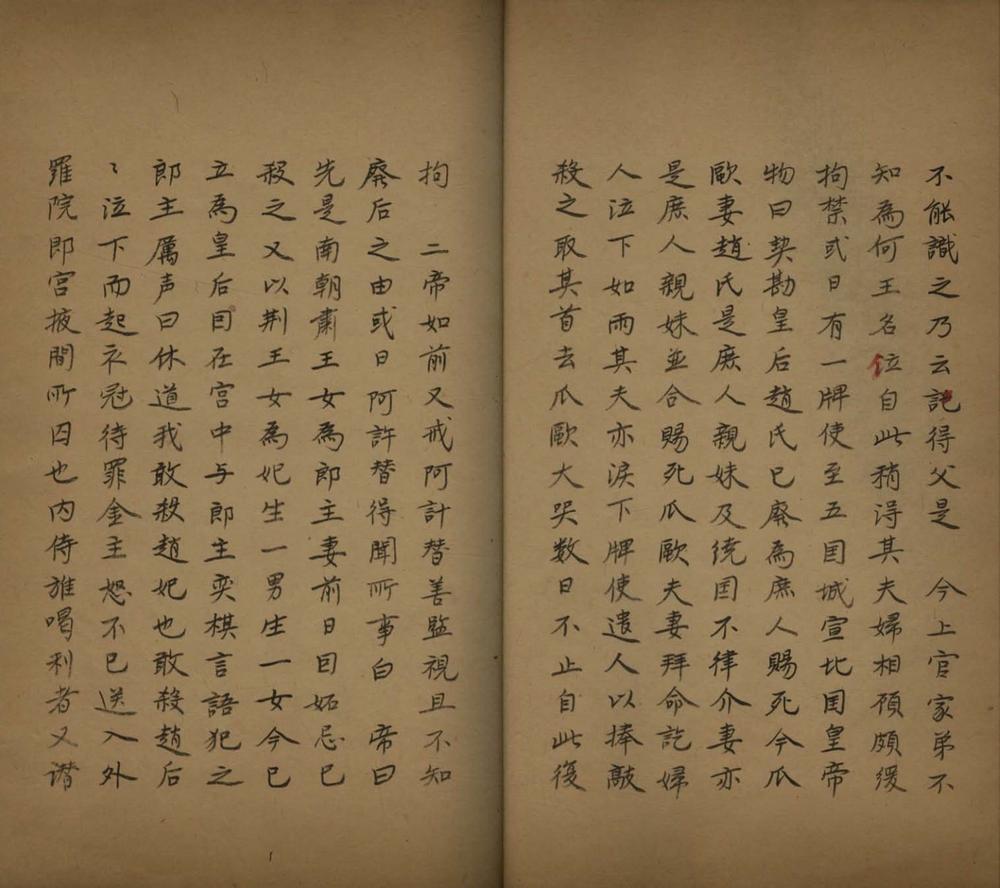 不能識之乃云記得父是　今上官家弟不
知為何王名位自此稍得其夫婦相顧頗緩
拘禁或日有一牌使至五囯城宣北囯皇帝
物曰契勘皇后趙氏已廢為庶人賜死今爪
歐妻趙氏是庶人親妹及繞囯不律介妻亦
是庶人親妹並合賜死爪歐夫妻拜命訖婦
人泣下如雨其夫亦淚下牌使遣人以捧敲
殺之取其首去爪歐大哭数日不止自此復
拘　二帝如前又戒阿計替善監視且不知
廢后之由或日阿許替得聞所事白　帝曰
先是南朝肅王女為郎主妻前日囙妬忌已
殺之又以荆王女為妃生一男生一女今已
立為皇后囙在宮中与郎主奕棋言語犯之
郎主厲声曰休道我敢殺趙妃也敢殺趙后
〻泣下而起衣冠待罪金主怒不已送入外
羅院即宮掖間所囚也内侍雏喝利者又譖